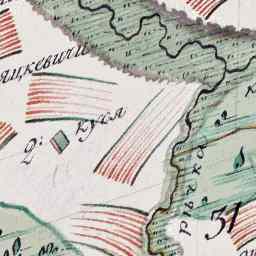 яцкевичи
2: куся
рѣчка
31